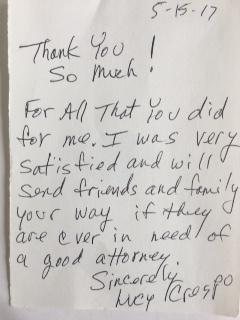 5-15-17
Thank You !
So much !
For All That You did
for me. I was very
satisfied and will
send friends and family
your way if they
are ever in need of
a good attorney.
Sincerely
Lucy Crespo